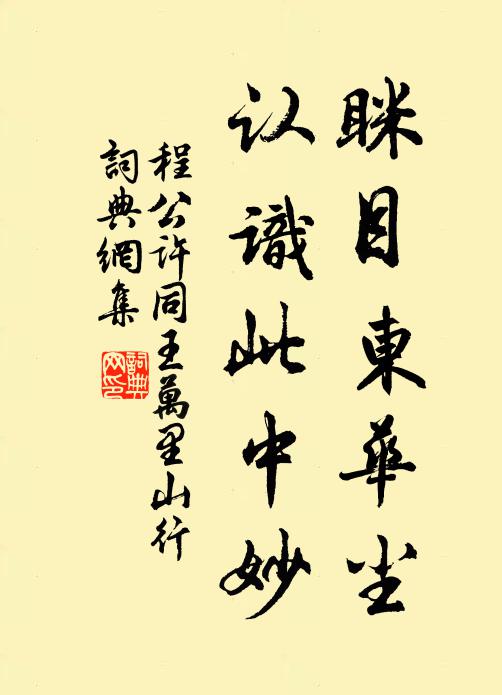 眯目東華尘
认識此中妙
程公许同王萬里山行
詞典網集
詞典网印